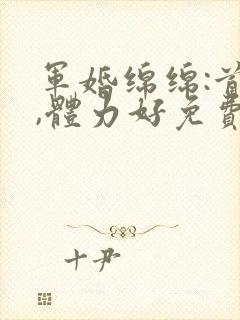 軍婚綿綿:首
,體力好免費
十尹